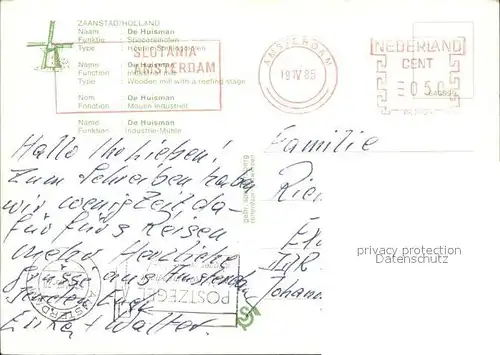 ZAANSTAD/HOLLAND
Naam : De Huisman
Funktie : Specerijmolen
Type : Houten Stellingmolen
Name : De Huisman
Function : Industrial mill
Type : Wooden mill with a reefing stage
Nom : De Huisman
Fonction : Moulin Industriel
Name : De Huisman
Funktion : Industrie-Mühle
SLOTANIA
AMSTERDAM
AMSTERDAM
19 IV 85
NEDERLAND
CENT
050
Hallo Ihr Lieben!
Zum Schreiben haben
wir wenig Zeit da-
für fürs Reisen
mehr Herzliche
Grüsse aus Amsterdam
senden Euch
Erika + Walter
Familie
Rie
DDR
Johann
privacy protection
Datenschutz
POSTZEGE
AMSTERDAM